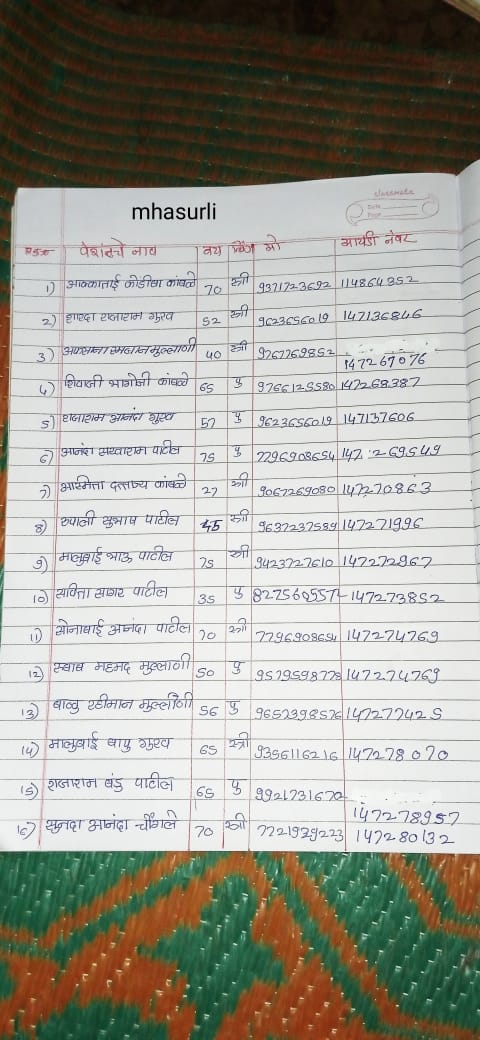 mhasurli
classmate
Date
Page
पेशंटचे नाव वय लिंग मो आयडी नंबर
1) आक्काताई कोंडीबा कांबळे 70 स्त्री 9371723692 114864352
2) शारदा राजाराम गुरव 52 स्त्री 9623656019 147136846
3) मुल्लाणी 40 स्त्री 9767769852 147267076
4) शिवाजी भागोजी कांबळे 65 पु 9766125580 147268387
5) राजाराम आनंदा गुरव 57 पु 9623656019 147137606
6) आनंदा सखाराम पाटील 75 पु 7796908654 147 269549
7) आस्मिता दत्तात्र्य कांबळे 27 स्त्री 9067269080 147270863
8) रुपाली सुभाष पाटील 45 स्त्री 9637237589 147271996
9) मालुबाई भाऊ पाटील 75 स्त्री 9423727610 147272967
10) सविता सागर पाटील 35 पु 8275605574 147273852
11) सोनाबाई आनंदा पाटील 70 स्त्री 7796908654 147274769
12) महमद मुल्लाणी 50 पु 9579598778 147274769
13) बाळु रहीमान मुल्लाणी 56 पु 9657398576 147277425
14) मालुबाई बापु गुरव 65 स्त्री 9356116216 147278070
15) राजाराम बंडु पाटील 65 पु 9921731670 147278957
16) सुनंदा आनंदा चौगले 70 स्त्री 7721929223 147280132